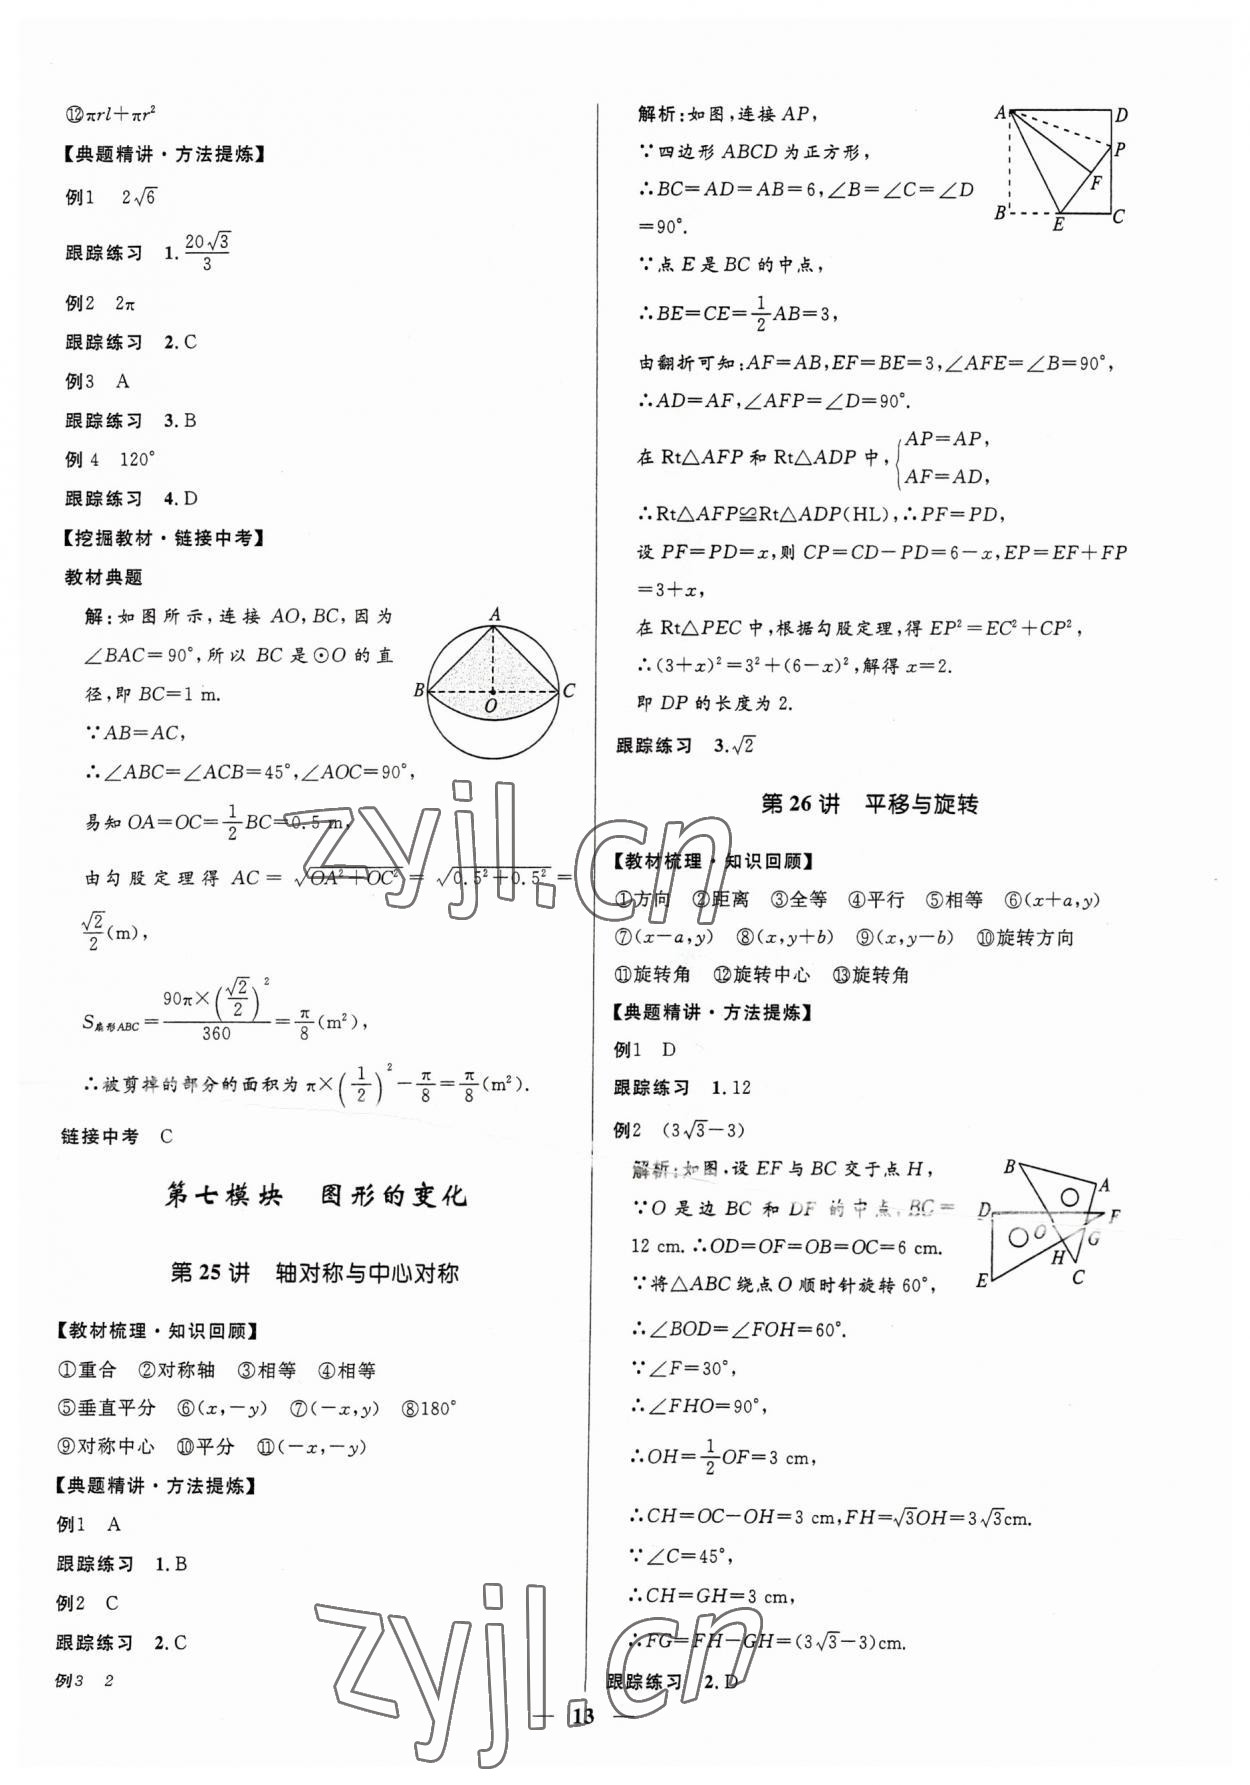 ⑫πrl+πr²
【典题精讲·方法提炼】
例1 2√6
跟踪练习 1. 20√3/3
例2 2π
跟踪练习 2.C
例3 A
跟踪练习 3.B
例4 120°
跟踪练习 4.D
【挖掘教材·链接中考】
教材典题
解:如图所示,连接 AO,BC,因为
∠BAC=90°,所以 BC 是⊙O 的直
径,即 BC=1 m.
∵AB=AC,
∴∠ABC=∠ACB=45°,∠AOC=90°,
易知 OA=OC=1/2BC=0.5 m,
由勾股定理得 AC=√(OA²+OC²)=√(0.5²+0.5²)=
√2/2(m),
S扇形ABC=90π×(√2/2)²/360=π/8(m²),
∴被剪掉的部分的面积为 π×(1/2)²-π/8=π/8(m²).
A
B
O
C
链接中考 C
第七模块 图形的变化
第 25 讲 轴对称与中心对称
【教材梳理·知识回顾】
①重合 ②对称轴 ③相等 ④相等
⑤垂直平分 ⑥(x,-y) ⑦(-x,y) ⑧180°
⑨对称中心 ⑩平分 ⑪(-x,-y)
【典题精讲·方法提炼】
例1 A
跟踪练习 1.B
例2 C
跟踪练习 2.C
例3 2
解析:如图,连接 AP,
∵四边形 ABCD 为正方形,
∴BC=AD=AB=6,∠B=∠C=∠D
=90°.
∵点 E 是 BC 的中点,
∴BE=CE=1/2AB=3,
由翻折可知:AF=AB,EF=BE=3,∠AFE=∠B=90°,
∴AD=AF,∠AFP=∠D=90°.
在 Rt△AFP 和 Rt△ADP 中,{AP=AP,
AF=AD,
∴Rt△AFP≌Rt△ADP(HL),∴PF=PD,
设 PF=PD=x,则 CP=CD-PD=6-x,EP=EF+FP
=3+x,
在 Rt△PEC 中,根据勾股定理,得 EP²=EC²+CP²,
∴(3+x)²=3²+(6-x)²,解得 x=2.
即 DP 的长度为 2.
A
D
P
F
B
E
C
跟踪练习 3.√2
第 26 讲 平移与旋转
【教材梳理·知识回顾】
①方向 ②距离 ③全等 ④平行 ⑤相等 ⑥(x+a,y)
⑦(x-a,y) ⑧(x,y+b) ⑨(x,y-b) ⑩旋转方向
⑪旋转角 ⑫旋转中心 ⑬旋转角
【典题精讲·方法提炼】
例1 D
跟踪练习 1.12
例2 (3√3-3)
解析:如图,设 EF 与 BC 交于点 H,
∵O 是边 BC 和 DF 的中点,BC=
12 cm.∴OD=OF=OB=OC=6 cm.
∵将△ABC 绕点 O 顺时针旋转 60°,
∴∠BOD=∠FOH=60°.
∵∠F=30°,
∴∠FHO=90°,
∴OH=1/2OF=3 cm,
∴CH=OC-OH=3 cm,FH=√3OH=3√3cm.
∵∠C=45°,
∴CH=GH=3 cm,
∴FG=FH-GH=(3√3-3)cm.
B
A
D
F
O
G
H
E
C
跟踪练习 2.D
13
zyjl.cn
zyjl.cn